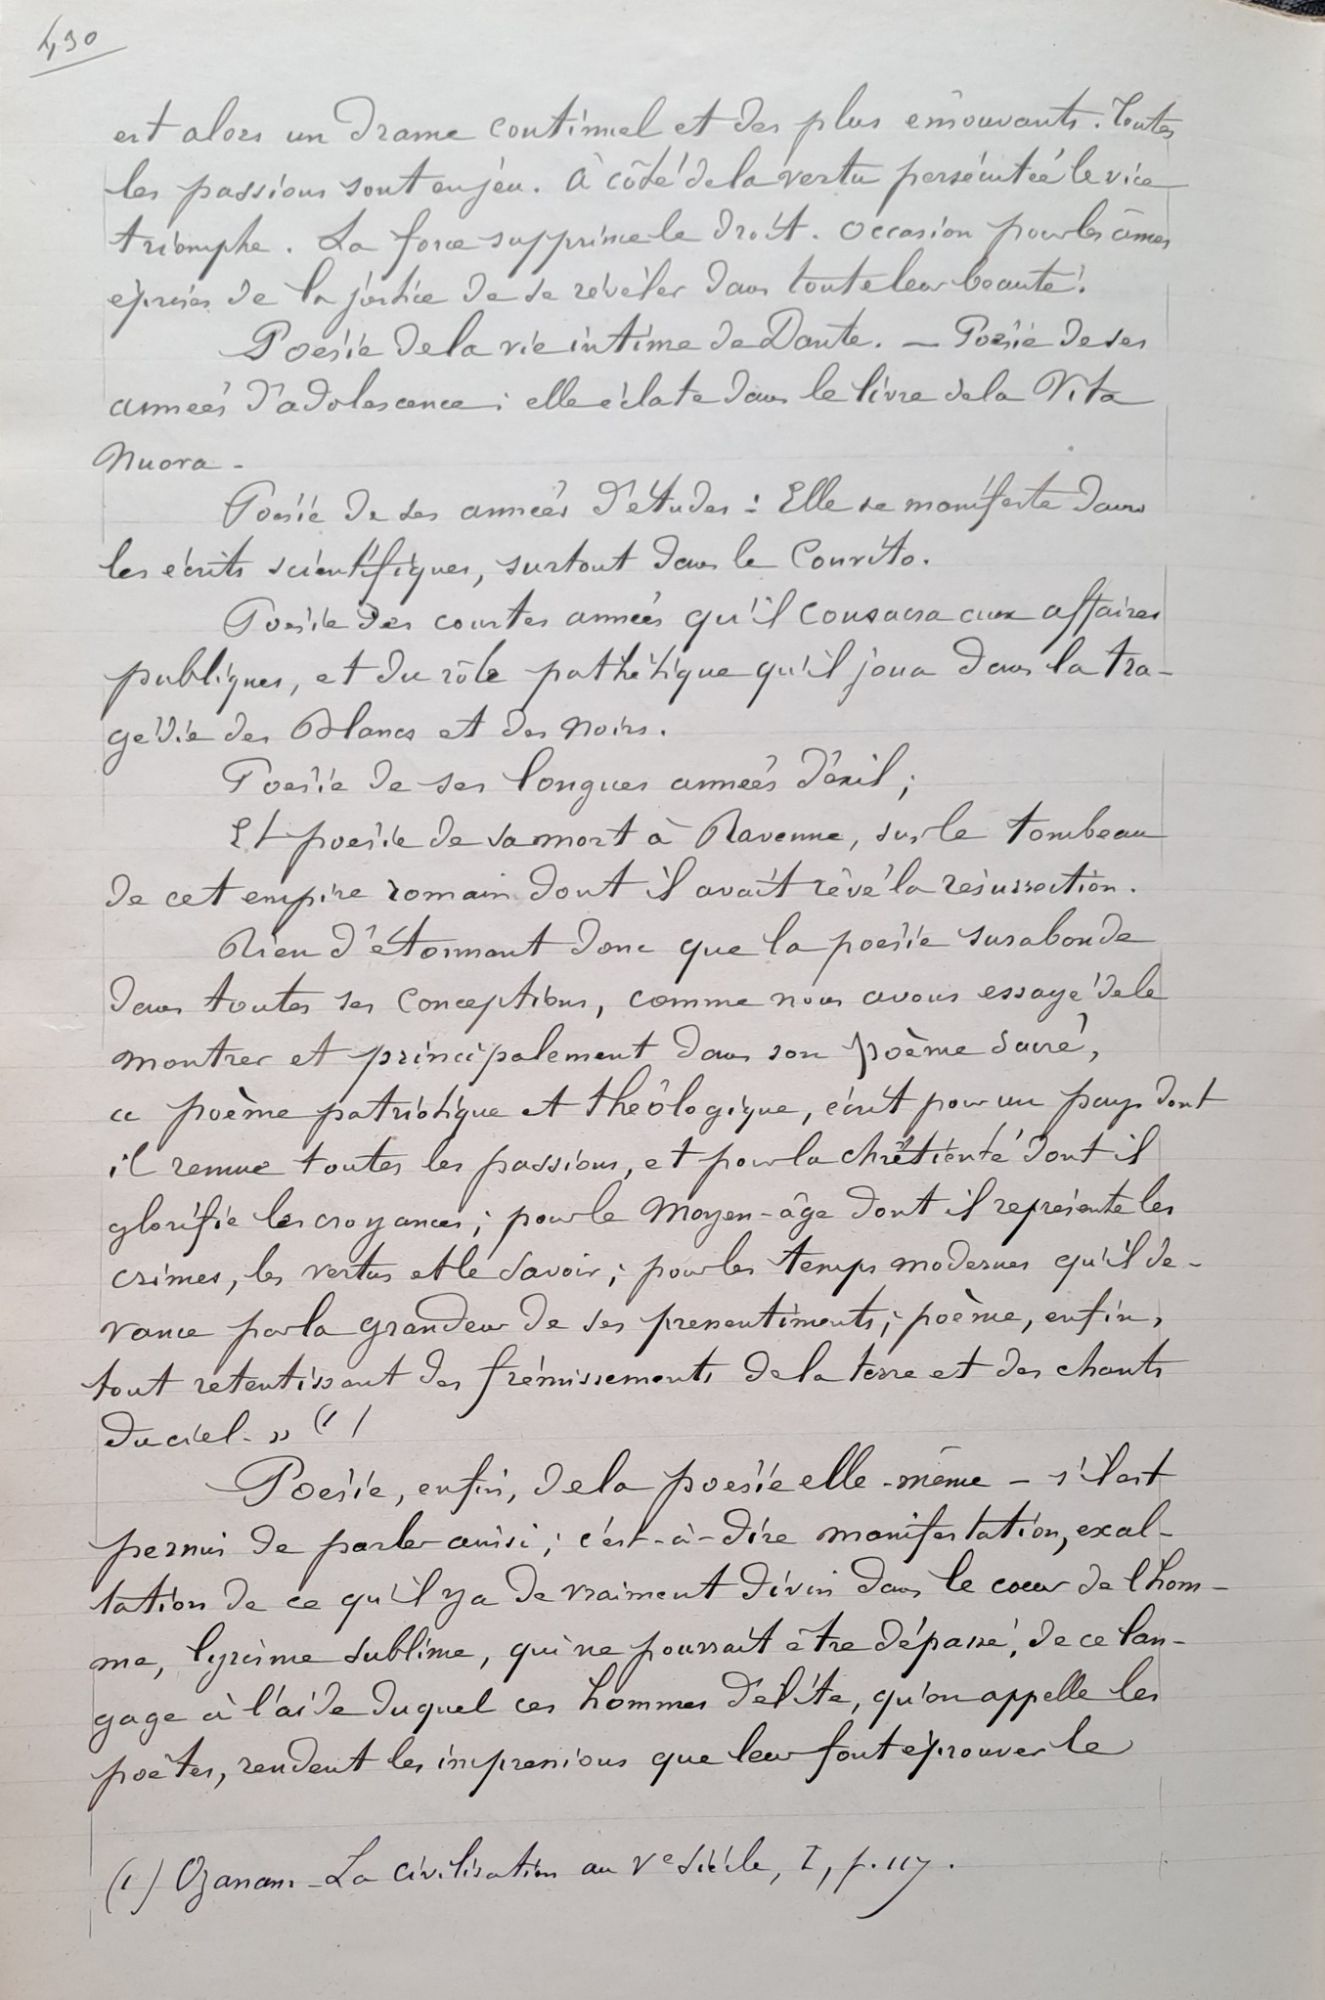 430
est alors un drame continuel et des plus émouvants. Toutes
les passions sont en jeu. À côté de la vertu persécutée le vice
triomphe. La force supprime le droit. Occasion pour les âmes
éprises de la justice de se révéler dans toute leur beauté.
Poésie de la vie intime de Dante. — Poésie de ses
années d'adolescence ; elle éclate dans le livre de la Vita
Nuova -
Poésie de ses années d'études : Elle se manifeste dans
les écrits scientifiques, surtout dans le Convito.
Poésie des courtes années qu'il consacra aux affaires
publiques, et du rôle pathétique qu'il joua dans la tra-
gédie des Blancs et des Noirs.
Poésie de ses longues années d'exil ;
Et poésie de sa mort à Ravenne, sur le tombeau
de cet empire romain dont il avait rêvé la résurrection.
Rien d'étonnant donc que la poésie surabonde
dans toutes ses conceptions, comme nous avons essayé de le
montrer et principalement dans son poème sacré,
ce poème patriotique et théologique, écrit pour un pays dont
il remue toutes les passions, et pour la chrétienté dont il
glorifie les croyances ; pour le Moyen-âge dont il représente les
crimes, les vertus et le savoir ; pour les temps modernes qu'il de-
vance par la grandeur de ses pressentiments ; poème, enfin,
tout retentissant des frémissements de la terre et des chants
du ciel. » (1)
Poésie, enfin, de la poésie elle-même - s'il est
permis de parler ainsi ; c'est-à-dire manifestation, exal-
tation de ce qu'il y a de vraiment divin dans le cœur de l'hom-
me, lyrisme sublime, qui ne pourrait être dépassé, de ce lan-
gage à l'aide duquel ces hommes d'élite, qu'on appelle les
poètes, rendent les impressions que leur font éprouver le
(1) Ozanam - La civilisation au Ve siècle, I, p. 117.